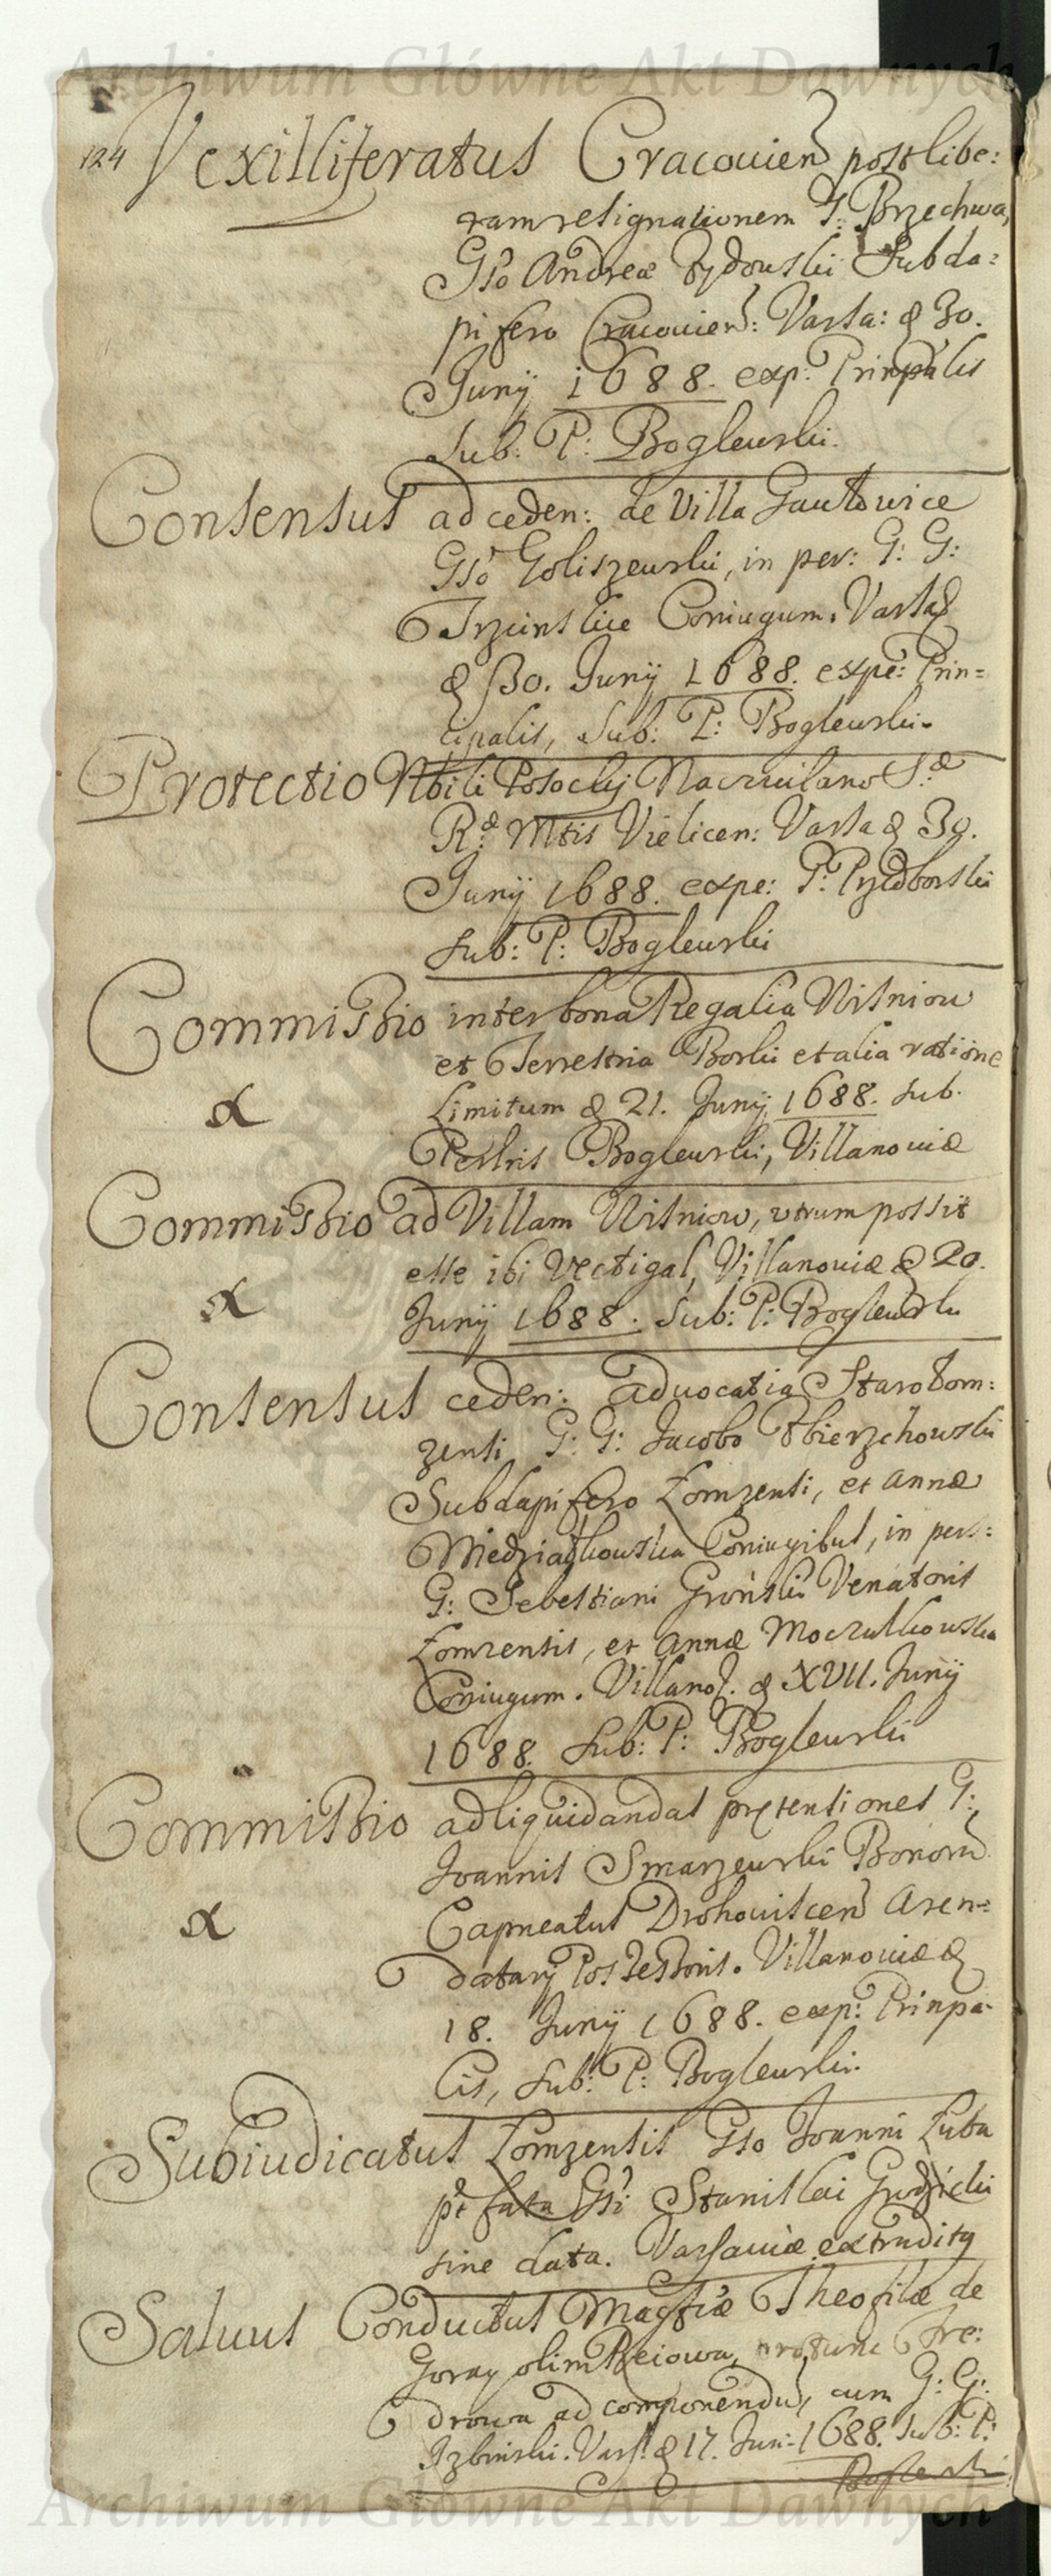 Archiwum Główne Akt Dawnych
124 Vexilliferatus Cracouien post libe:
ram resignationem G: Brzechwa,
Gso Andreæ Żydowski Subda:
pifero Cracouien: Varsa: d 30.
Junij 1688. exp: Prinpalis
Sub: P: Boglewski.
Consensus ad ceden: de Villa
Gso Goliszewski, in per: G: G:
Coniugum. Varsa
d 30. Junij 1688. expe: Prin=
cipalis, Sub: P: Boglewski.
Protectio Nbili
R. Mtis Vielicen: Varsa d 30.
Junij 1688. expe: P:
Sub: P: Boglewski
Commissio inter bona Regalia Nisniow
et Terrestria Borki et alia ratione
Limitum d 21. Junij 1688. sub.
Boglewski, Villanouiæ
Commissio ad Villam Nisniow, vtrum possit
esse ibi Vectigal, Villanouiæ d 29.
Junij 1688. Sub: P: Boglewski
Consensus ceden: aduocatia Starołom:
zensi G: G: Jacobo Zbierzchowski
Subdapifero Łomzensi, et Annæ
Coniugibus, in pers:
G: Sebestiani Gronski Venatoris
Łomzensis, et Annæ Moczulkowska
Coniugum. Villano. d XVII. Junij
1688. Sub: P: Boglewski
Commissio ad liquidandas prętensiones G:
Joannis Smarzewski Bonorū
Capneatus Drohouicen Aren=
datarij Possessoris. Villanouiæ d
18. Junij 1688. exp: Prinpa-
lis, Sub: P: Boglewski.
Subiudicatus Łomzensis Gso Joanni Łuba
pt fata Gsi Stanislai Grodzicki
sine data. Varsauiæ extradita
Saluus Conductus Magfcæ Theofilæ de
Goray olim Reiowa, protunc Fre:
drowa ad componendū, cum G: G:
Izbinski. Vars: d 17. Jun: 1688. Sub: P:
Boglewski
Archiwum Główne Akt Dawnych